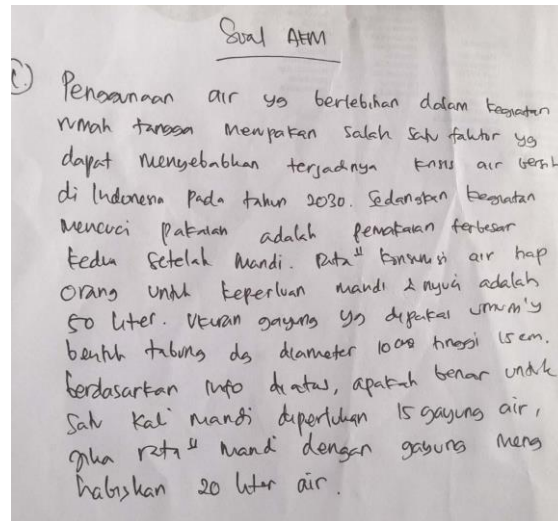 Soal AKM
1.) Penggunaan air yg berlebihan dalam kegiatan
rumah tangga merupakan salah satu faktor yg
dapat menyebabkan terjadinya krisis air bersih
di Indonesia pada tahun 2030. Sedangkan kegiatan
mencuci pakaian adalah pemakaian terbesar
kedua setelah mandi. Rata" konsumsi air tiap
orang untuk keperluan mandi & nyuci adalah
50 liter. Ukuran gayung yg dipakai umum'y
bentuk tabung dg diameter 10 cm tinggi 15 cm.
berdasarkan info diatas, apakah benar untuk
satu kali mandi diperlukan 15 gayung air,
jika rata" mandi dengan gayung meng
habiskan 20 liter air.